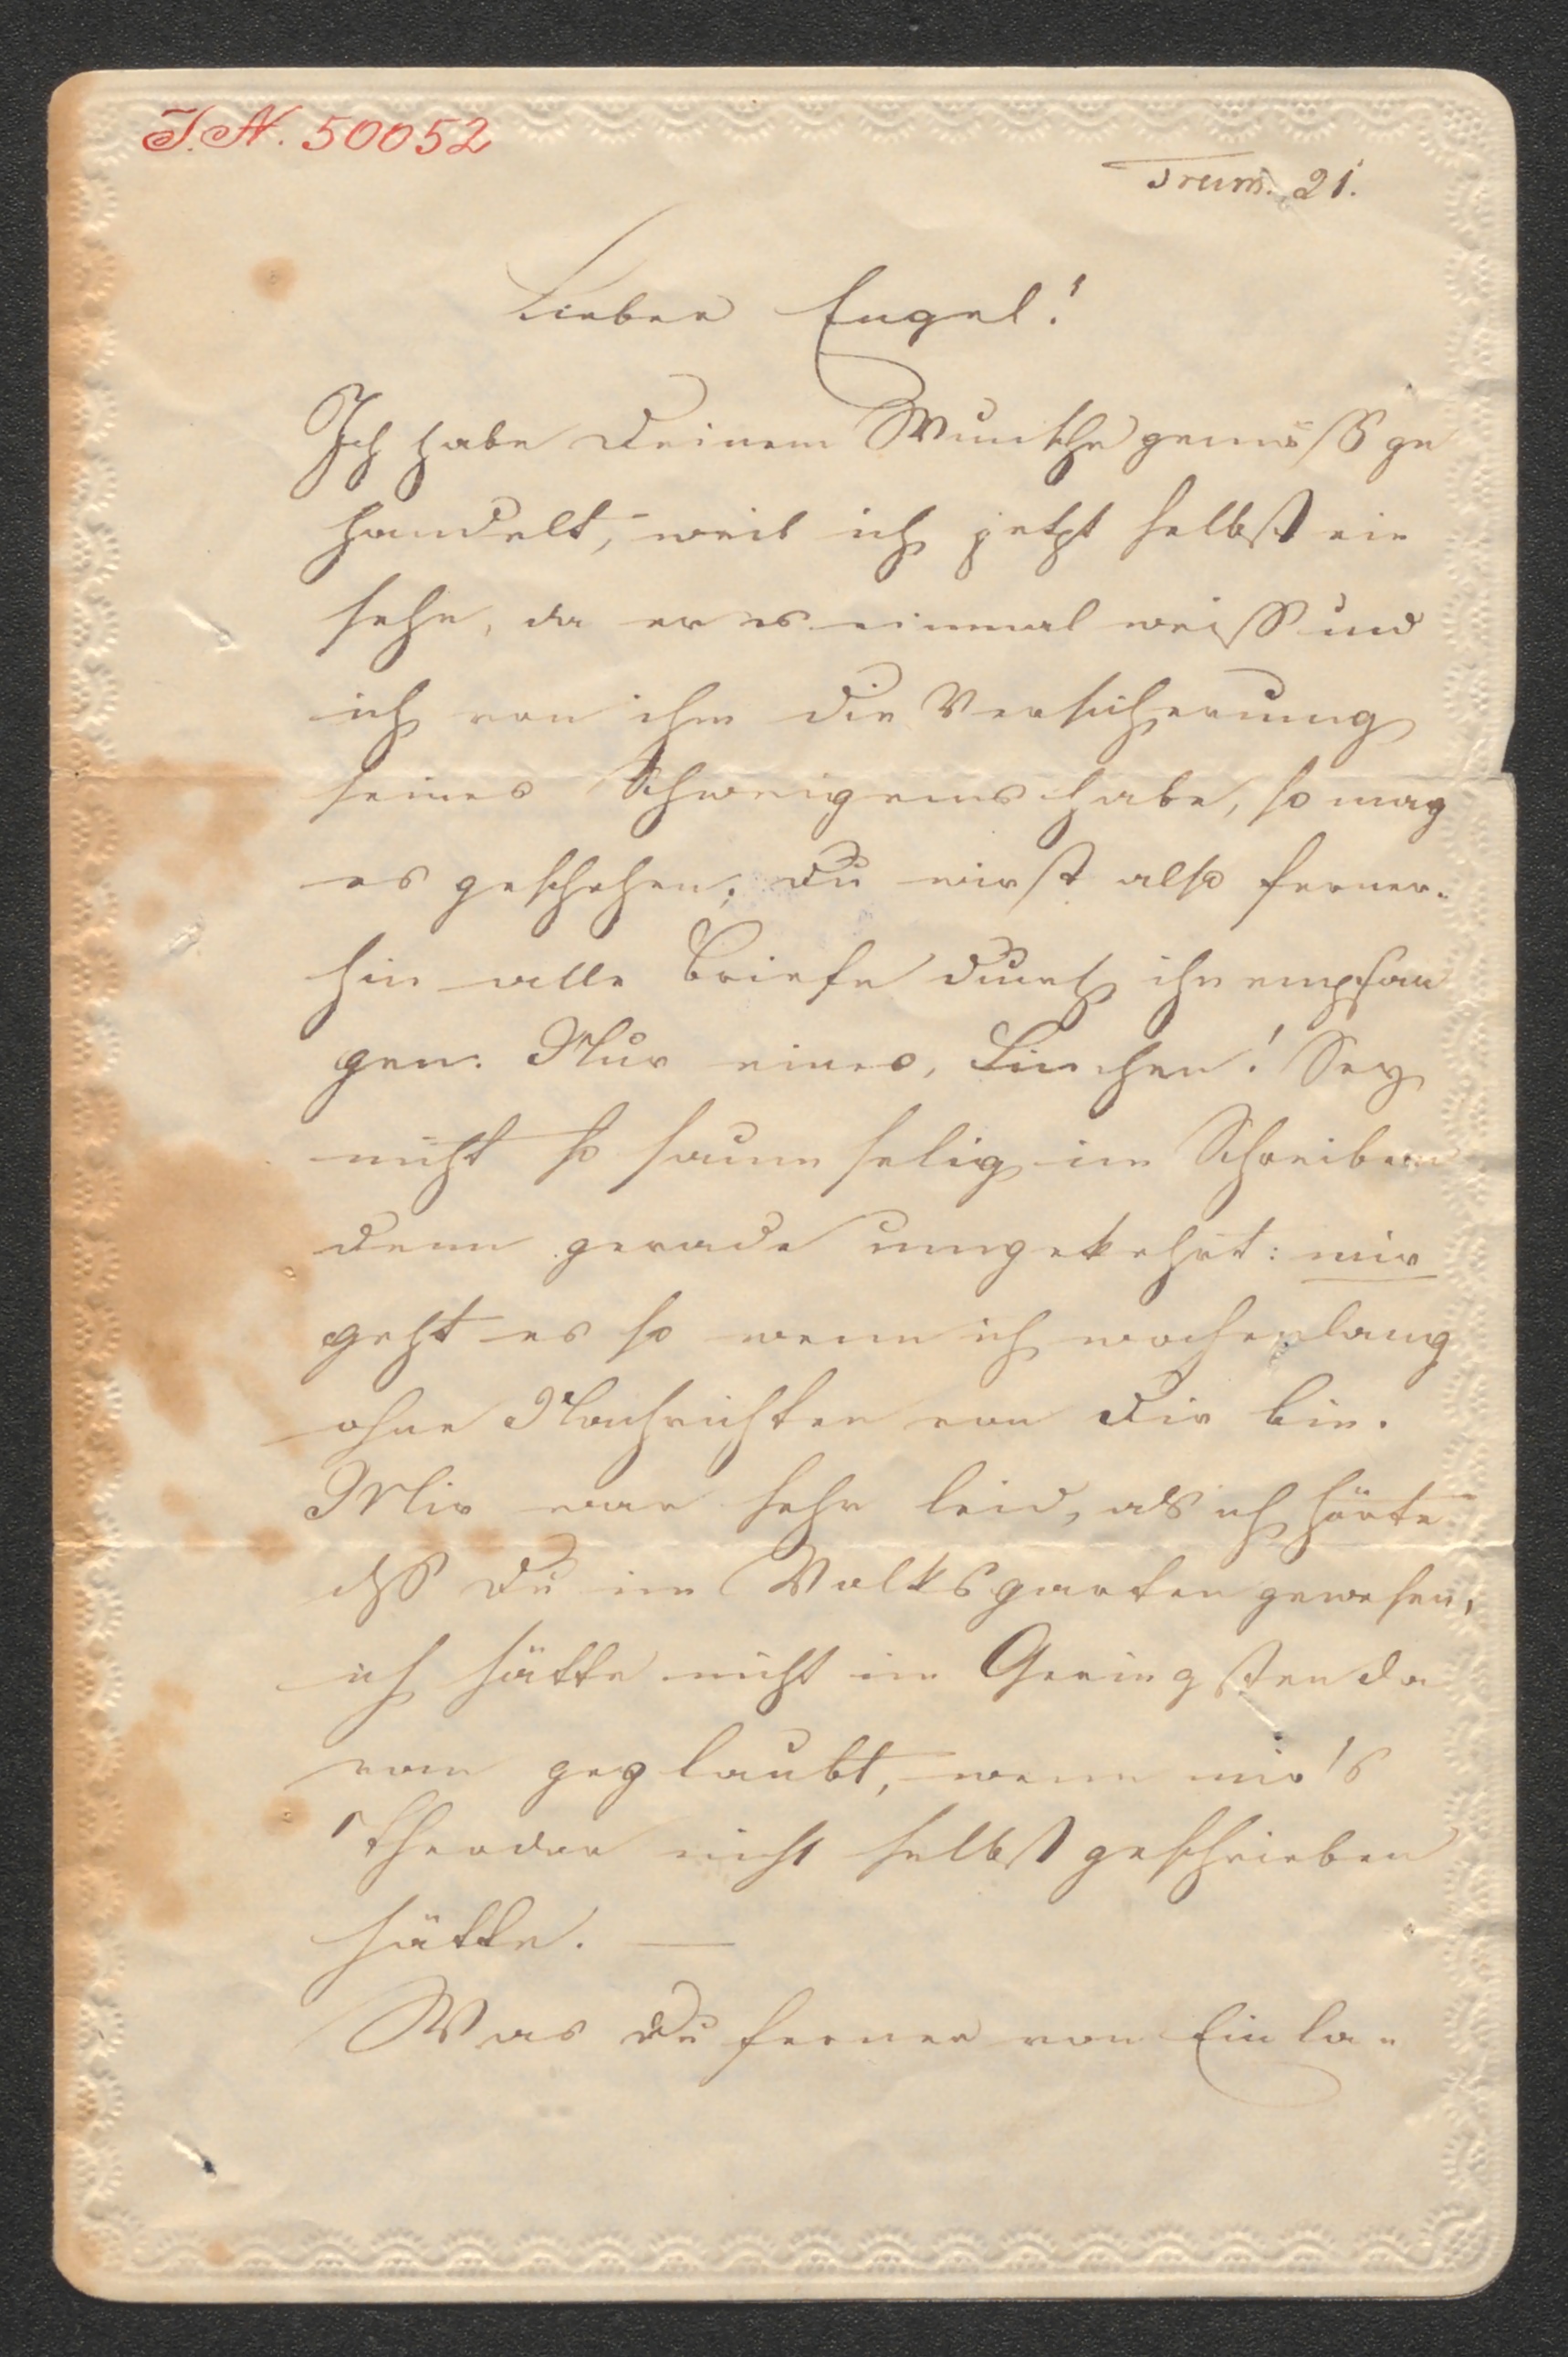 J.N. 50052
Trum. 21.
Lieber Engel!
Ich habe Deinem Wunsche gemäß ge
handelt, weil ich jetzt selbst ein
sehe, da er es einmal weiß und
ich von ihm die Versicherung
seines Schweigens habe, so mag
es geschehen; Du wirst also ferner-
hin alle Briefe durch ihn empfan
gen. Nur eines, Linchen! Sey
nicht so saumselig im Schreiben
denn gerade umgekehrt: mir
geht es so wenn ich wochenlang
ohne Nachrichten von Dir bin.
Mir war sehr leid, als ich hörte
dß Du im Volksgarten gewesen,
ich hätte nicht im Geringsten da
von geglaubt, wenn mir's
Theodor nicht selbst geschrieben
hätte. —
Was Du ferner von Einla-